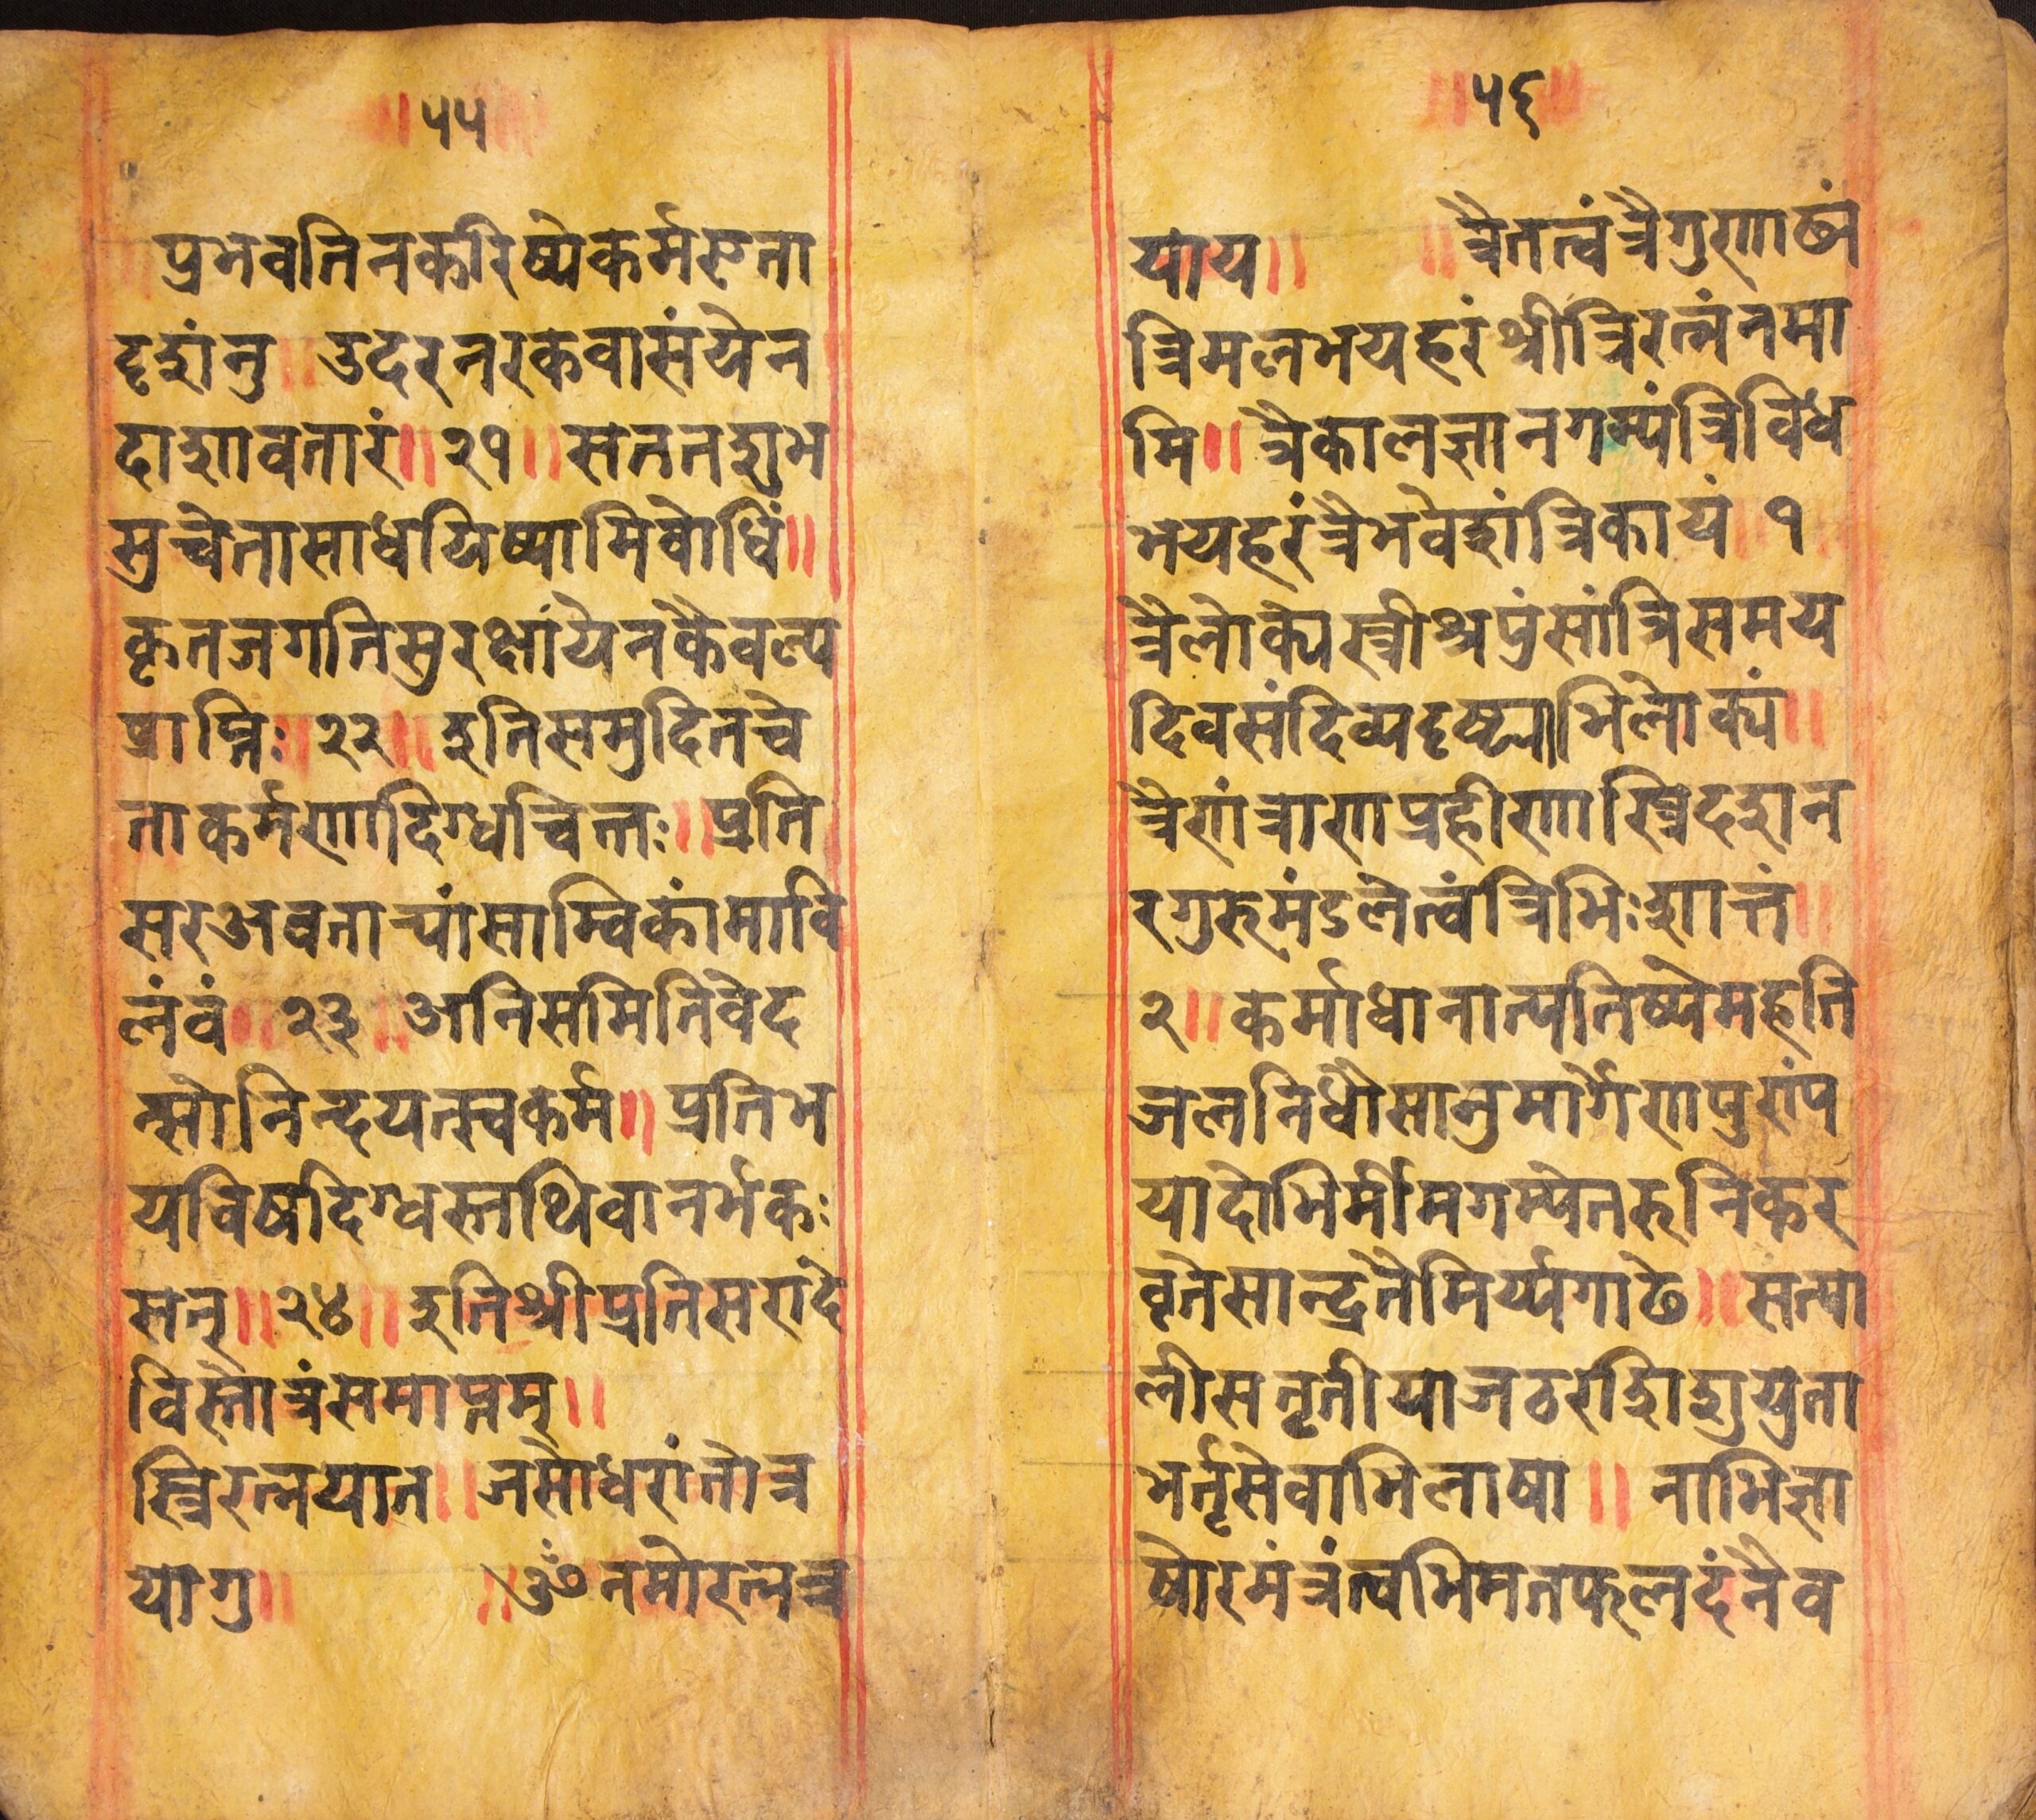 ५५
प्रभवतिनकरिष्येकर्मरूता
दृशंनु॥ उदरनरकवासंयेन
दाशावतारं॥२१॥ सततशुभ
सुचेतासाधयिष्यामिवोधिं॥
कृतजगतिसुरक्षांयेनकैवल्य
प्राप्तिः॥२२॥ इतिसमुदितचे
ताकर्मणादिग्धचित्तः॥प्रति
सरअवनाच्यांसाम्विकांमावि
लंवं॥२३॥अतिसमितिवेद
त्सोनिन्दयत्स्वकर्म॥ प्रतिभ
यविषदिग्धस्तथिवानर्भकः
सन्॥२४॥ इतिश्रीप्रतिसरादे
विस्तोत्रंसमाप्तम्॥
स्त्रिरत्नयात॥ जसोधरांतोत्र
यागु॥ ॥ॐनमोरत्नत्र
॥५६॥
याय॥ ॥त्रैतत्वंत्रैगुणाख्यं
त्रिमलभयहरंश्रीत्रिरत्नंनमा
मि॥त्रैकालज्ञानगम्यंत्रिविध
भयहरंत्रैभवेशंत्रिकायं॥१
त्रैलोक्येस्त्रीश्चपुंसांत्रिसमय
दिवसंदिव्यदृष्ट्या॥भिलोक्यं॥
त्रैणंत्राणप्रहीणास्त्रिदशन
रगुरुमंडलेत्वंत्रिभिःशात्तं॥
२॥कर्माधानात्पतिष्येमहति
जलनिधौसानुमार्गेणपुरांप
यादोभिर्मीमगम्येतरुनिकर
वृतेसान्द्रतैमिर्य्यगाढे॥सत्पा
लीसतृतीयाजठरशिशुयुता
भर्तृसेवाभिलाषा॥ नाभिज्ञा
षोरमंत्रंत्वभिमतफलदंनैव